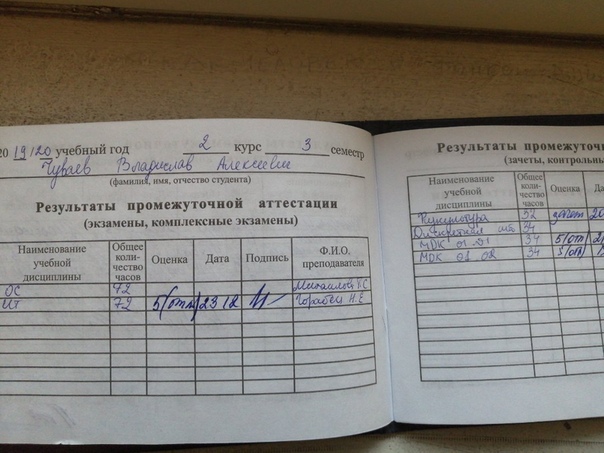 20 19/20 учебный год 2 курс 3 семестр
Чуваев Владислав Алексеевич
(фамилия, имя, отчество студента)
Результаты промежуточной аттестации
(экзамены, комплексные экзамены)
Наименование учебной дисциплины
Общее коли-чество часов
Оценка
Дата
Подпись
Ф.И.О. преподавателя
ОС 72
ИТ 72 5(отл) 23 12 Горабец Н.Е
Результаты промежуточн
(зачеты, контрольны
Наименование учебной дисциплины
Общее коли-чество часов
Оценка
Да
32 зачет 20
Дискретная 34
МДК 01 01 34 5(отл)
МДК 01 02 34 5(отл)